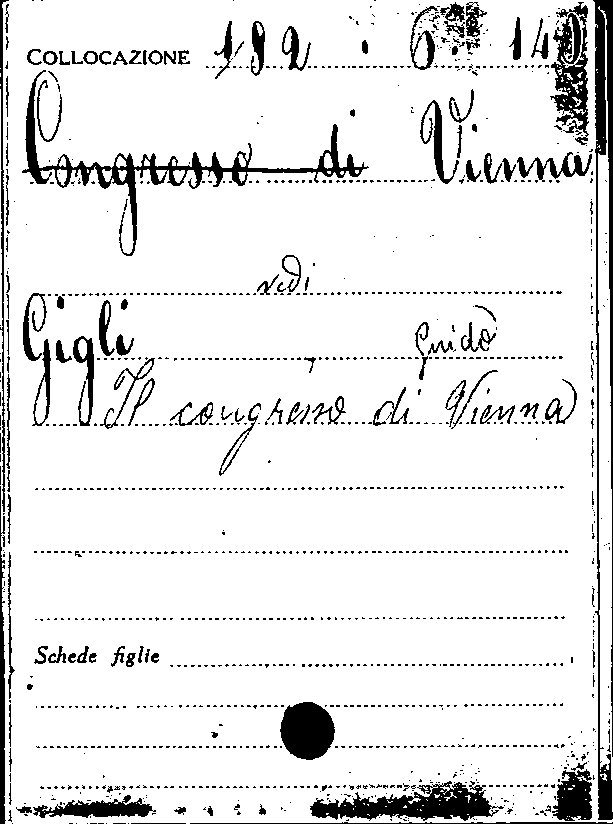 COLLOCAZIONE 182 . 6. 140
Congresso di Vienna
vedi
Gigli Guido
Il congresso di Vienna
Schede figlie